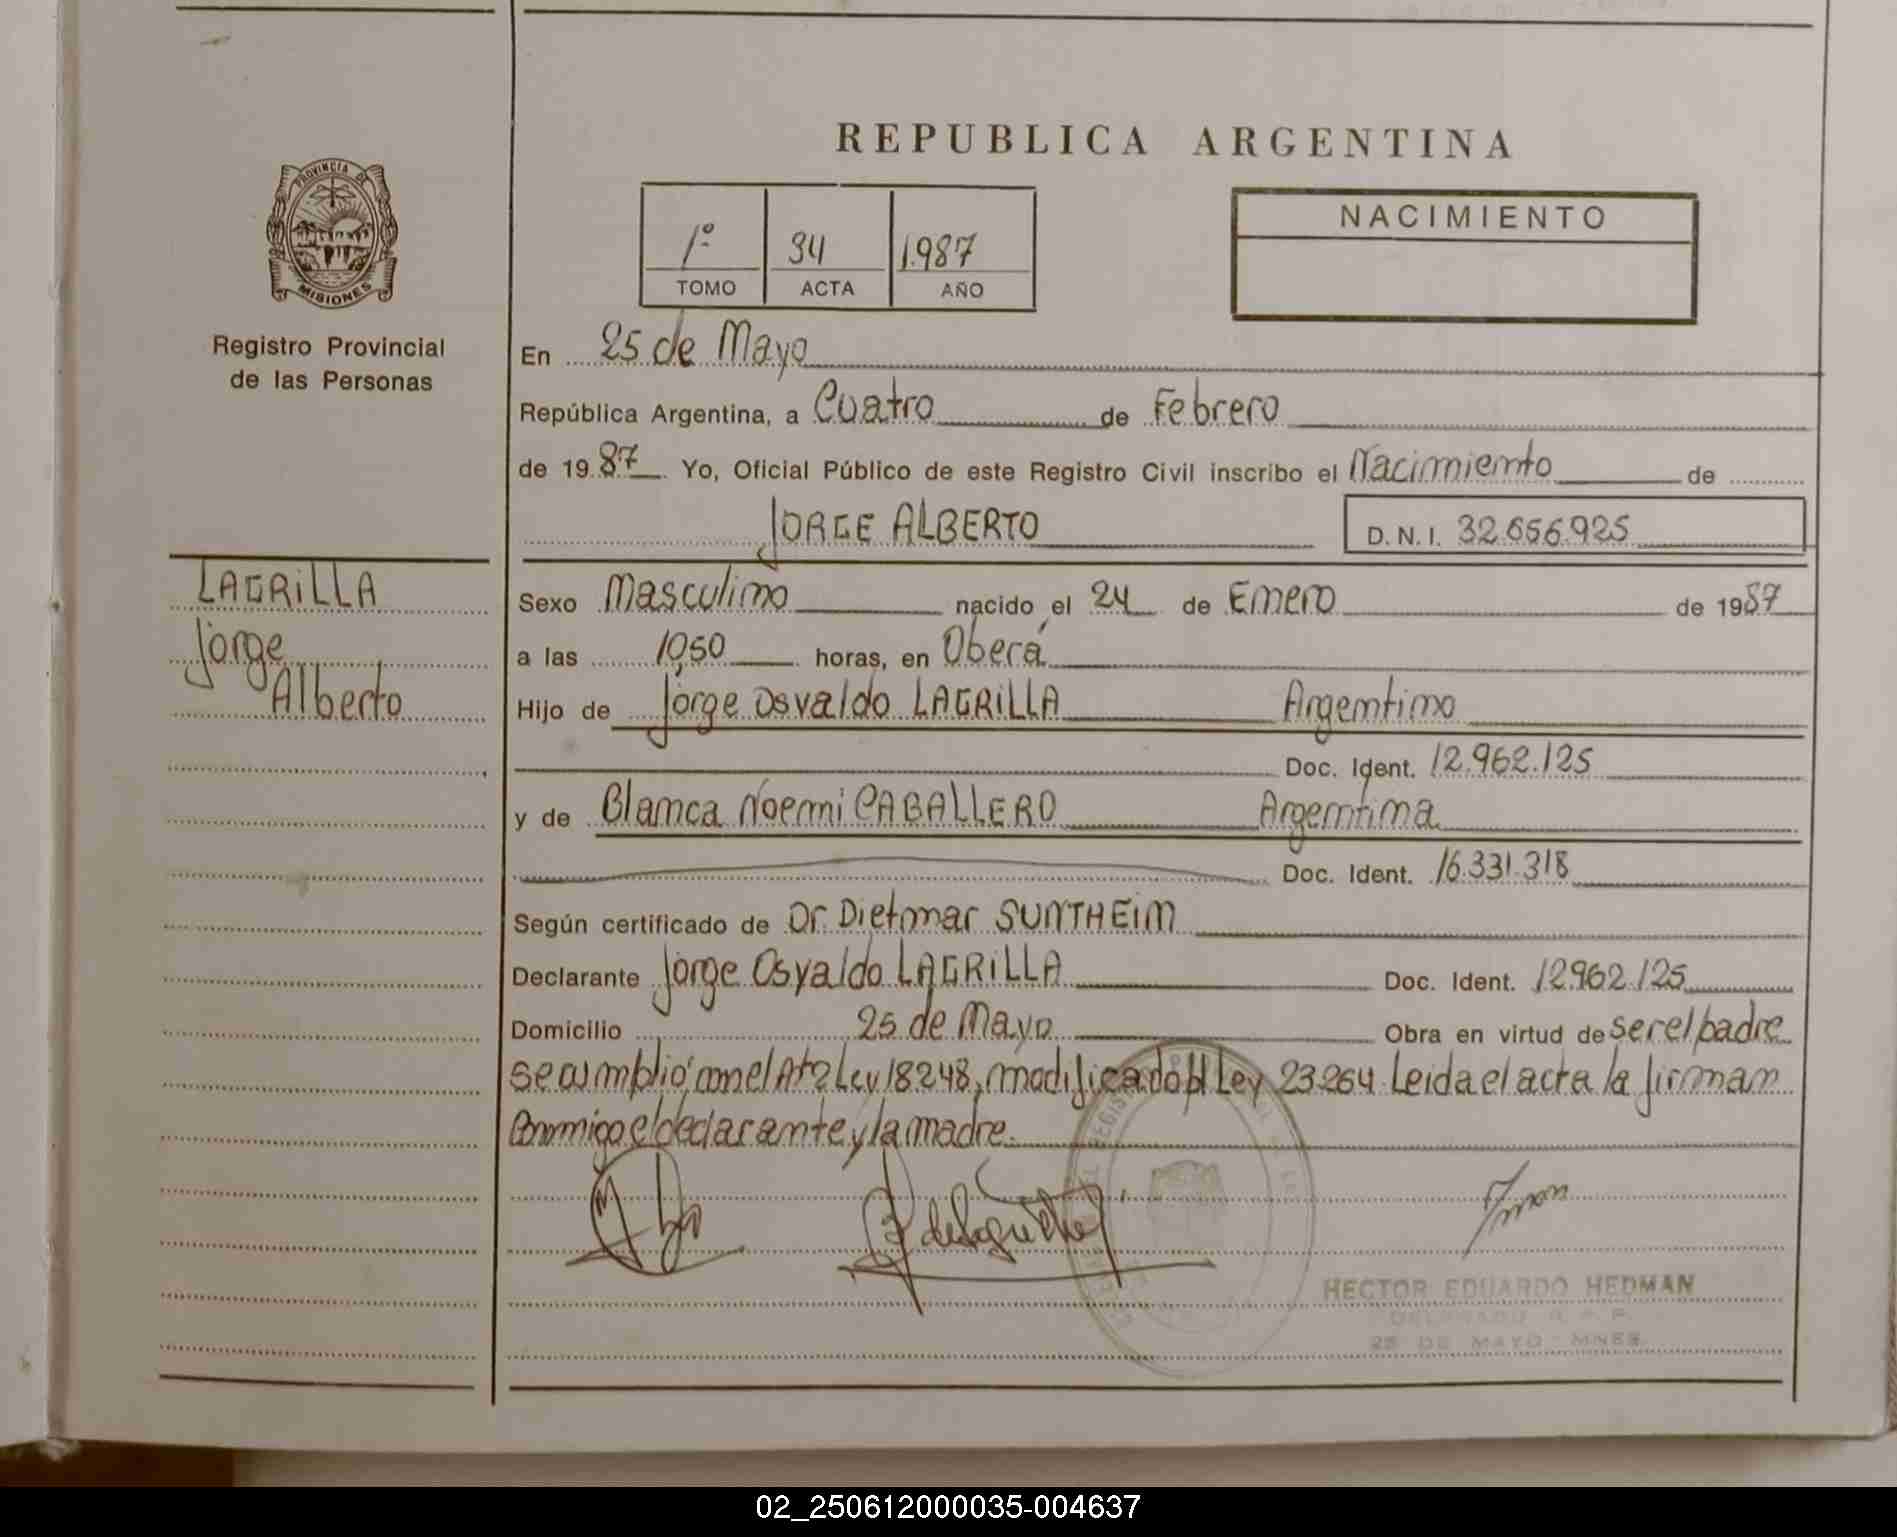 REPUBLICA ARGENTINA
PROVINCIA DE
MISIONES
Registro Provincial
de las Personas
1º 34 1.987
TOMO ACTA AÑO
NACIMIENTO
En 25 de Mayo
República Argentina, a Cuatro de Febrero
de 1987 Yo, Oficial Público de este Registro Civil inscribo el Nacimiento de
JORGE ALBERTO D.N.I. 32.656.925
LAGRILLA
Jorge
Alberto
Sexo Masculino nacido el 24 de Enero de 1987
a las 10,50 horas, en Oberá
Hijo de Jorge Osvaldo LAGRILLA Argentino
Doc. Ident. 12.962.125
y de Blanca Noemi CABALLERO Argentina
Doc. Ident. 16.331.318
Según certificado de Dr. Dietmar SUNTHEIM
Declarante Jorge Osvaldo LAGRILLA Doc. Ident. 12.962.125
Domicilio 25 de Mayo Obra en virtud de ser el padre
se cumplió con el Art 2 Ley 18248, modificado p/ Ley 23.264. Leida el acta la firman
conmigo el declarante y la madre.
HECTOR EDUARDO HEDMAN
DELEGADO R. P. P.
25 DE MAYO MNES.
02_250612000035-004637